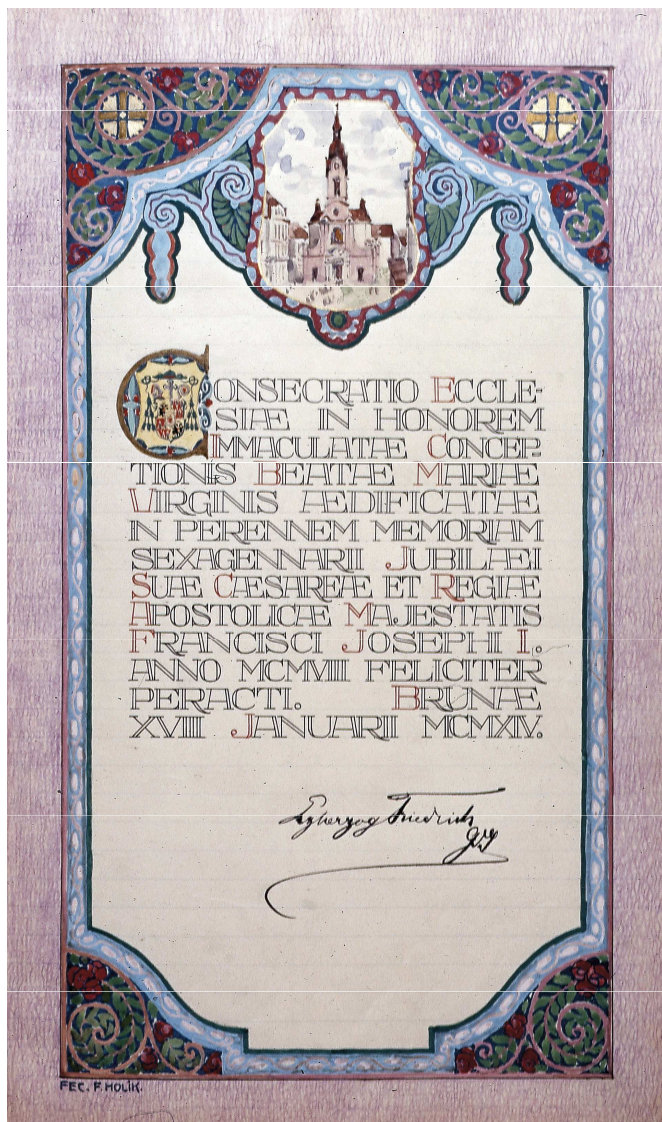 CONSECRATIO ECCLE-
SIÆ IN HONOREM
IMMACULATÆ CONCEP-
TIONIS BEATÆ MARIÆ
VIRGINIS ÆDIFICATÆ
IN PERENNEM MEMORIAM
SEXAGENNARII JUBILÆI
SUÆ CÆSAREÆ ET REGIÆ
APOSTOLICÆ MAJESTATIS
FRANCISCI JOSEPHI I.
ANNO MCMVIII FELICITER
PERACTI. BRUNÆ
XVIII JANUARII MCMXIV.
Erzherzog Friedrich
FEC. F. HOLÍK.